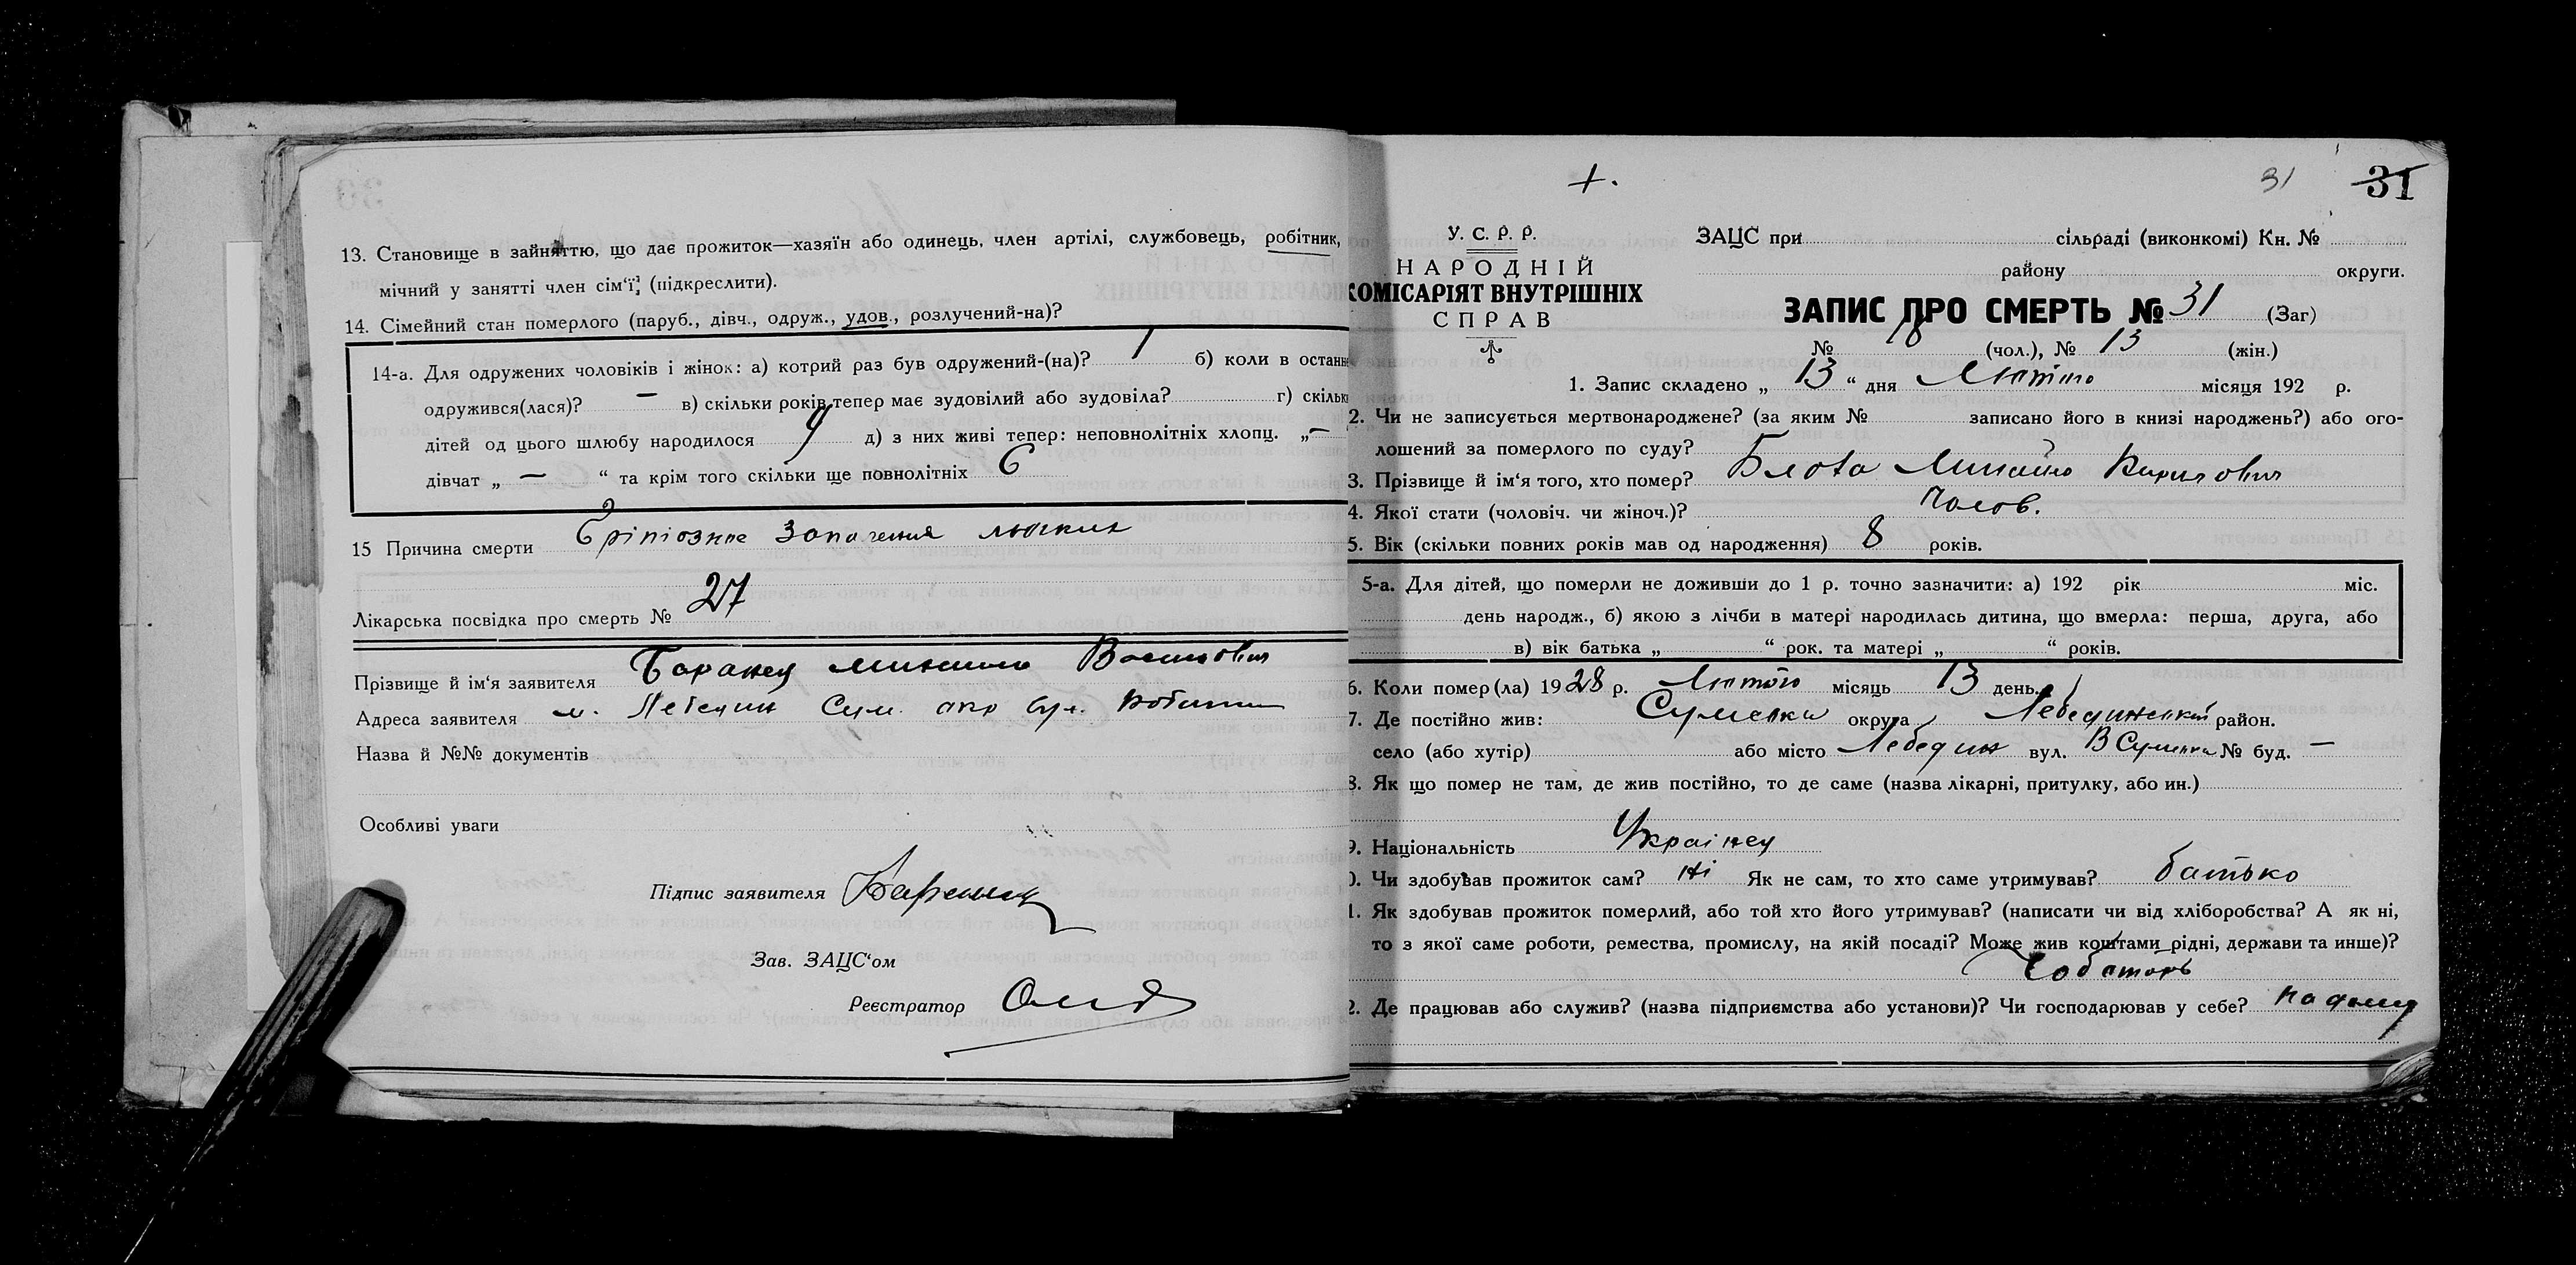 13. Становище в зайняттю, що дає прожиток—хазяїн або одинець, член артілі, службовець, робітник,
мічний у занятті член сім‘ї; (підкреслити).
14. Сімейний стан померлого (паруб., дівч., одруж., удов., розлучений-на)?
14-а. Для одружених чоловіків і жінок: а) котрий раз був одружений-(на)? 1 б) коли в останн
одружився(лася)? — в) скільки років тепер має зудовілий або зудовіла? г) скільк
дітей од цього шлюбу народилося 9 д) з них живі тепер: неповнолітніх хлопц. „ —
дівчат „ — “ та крім того скільки ще повнолітніх 6
15 Причина смерти запалення
Лікарська посвідка про смерть № 27
Прізвище й ім‘я заявителя
Адреса заявителя м. Лебедин Сум. окр вул.
Назва й №№ документів
Особливі уваги
Підпис заявителя
Зав. ЗАЦС‘ом
Реєстратор
+.
31 31
У. С. Р. Р.
НАРОДНІЙ
КОМІСАРІЯТ ВНУТРІШНІХ
СПРАВ
ЗАЦС при сільраді (виконкомі) Кн. №
району округи.
ЗАПИС ПРО СМЕРТЬ № 31 (Заг)
№ 18 (чол.), № 13 (жін.)
1. Запис складено „ 13 “ дня Лютого місяця 192 р.
2. Чи не записується мертвонароджене? (за яким № записано його в книзі народжень?) або ого-
лошений за померлого по суду?
3. Прізвище й ім‘я того, хто помер? Михайло Кирилович
4. Якої стати (чоловіч. чи жіноч.)? Чолов.
5. Вік (скільки повних років мав од народження) 8 років.
5-а. Для дітей, що померли не доживши до 1 р. точно зазначити: а) 192 рік міс.
день народж., б) якою з лічби в матері народилась дитина, що вмерла: перша, друга, або
в) вік батька „ “ рок. та матері „ “ років.
6. Коли помер(ла) 1928 р. Лютого місяць 13 день.
7. Де постійно жив: Сумська округа Лебединський район.
село (або хутір) або місто Лебедин вул. В Сумська № буд. —
8. Як що помер не там, де жив постійно, то де саме (назва лікарні, притулку, або ин.)
9. Національність Українец
0. Чи здобував прожиток сам? ні Як не сам, то хто саме утримував? батько
1. Як здобував прожиток померлий, або той хто його утримував? (написати чи від хліборобства? А як ні,
то з якої саме роботи, ремества, промислу, на якій посаді? Може жив коштами рідні, держави та инше)?
Чоботарь
2. Де працював або служив? (назва підприємства або установи)? Чи господарював у себе? на дому